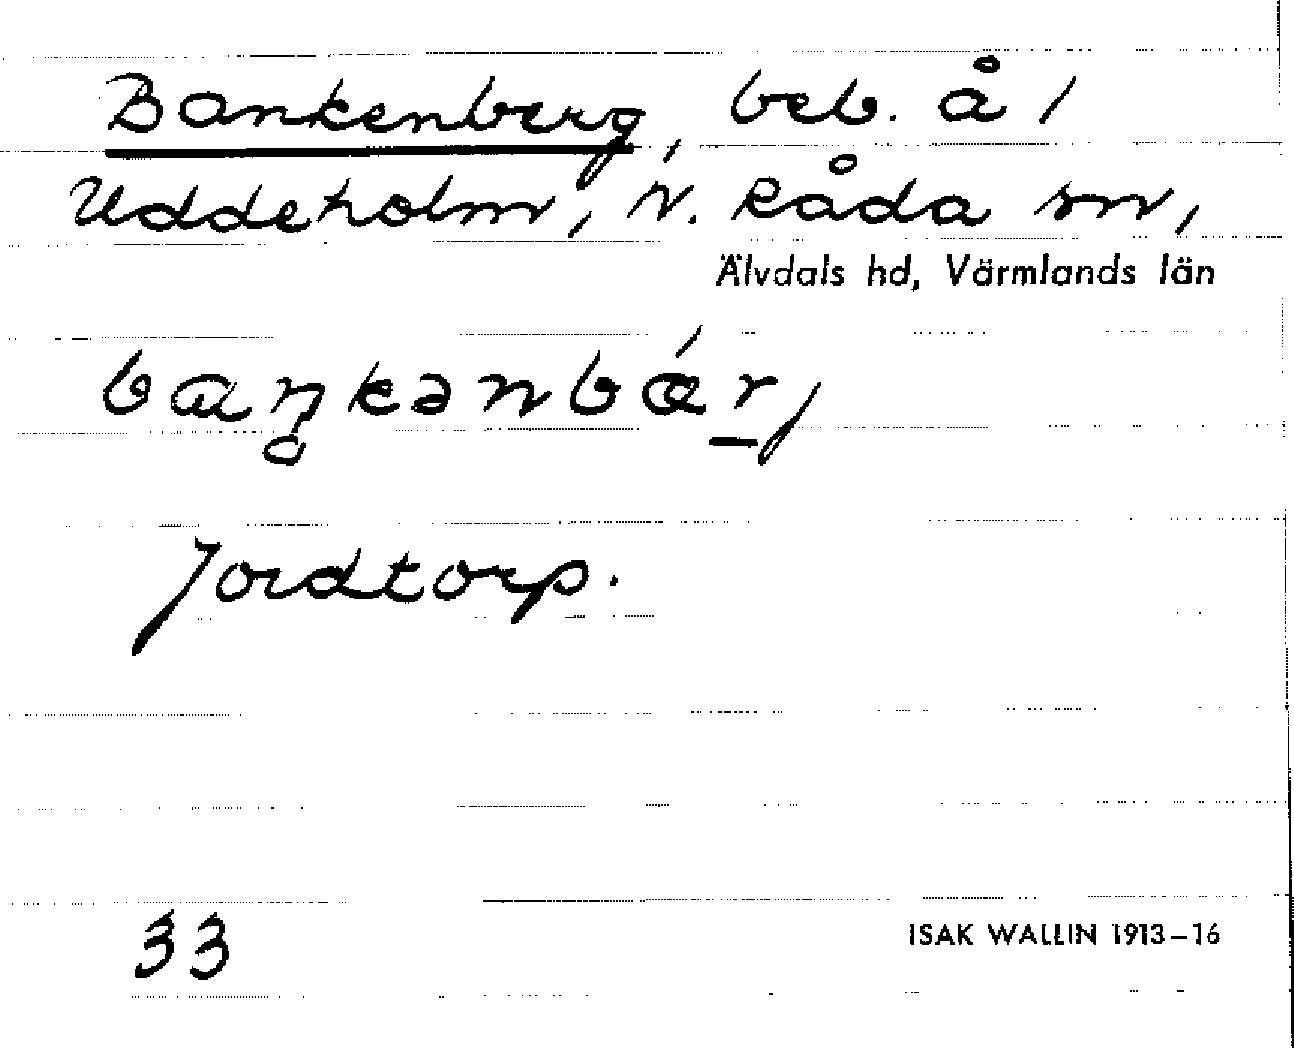 Bankenberg, beb. å 1
Uddeholm, N. Råda sn,
Älvdals hd, Värmlands län
baŋkənbǽr,
Jordtorp.
33
ISAK WALLIN 1913–16